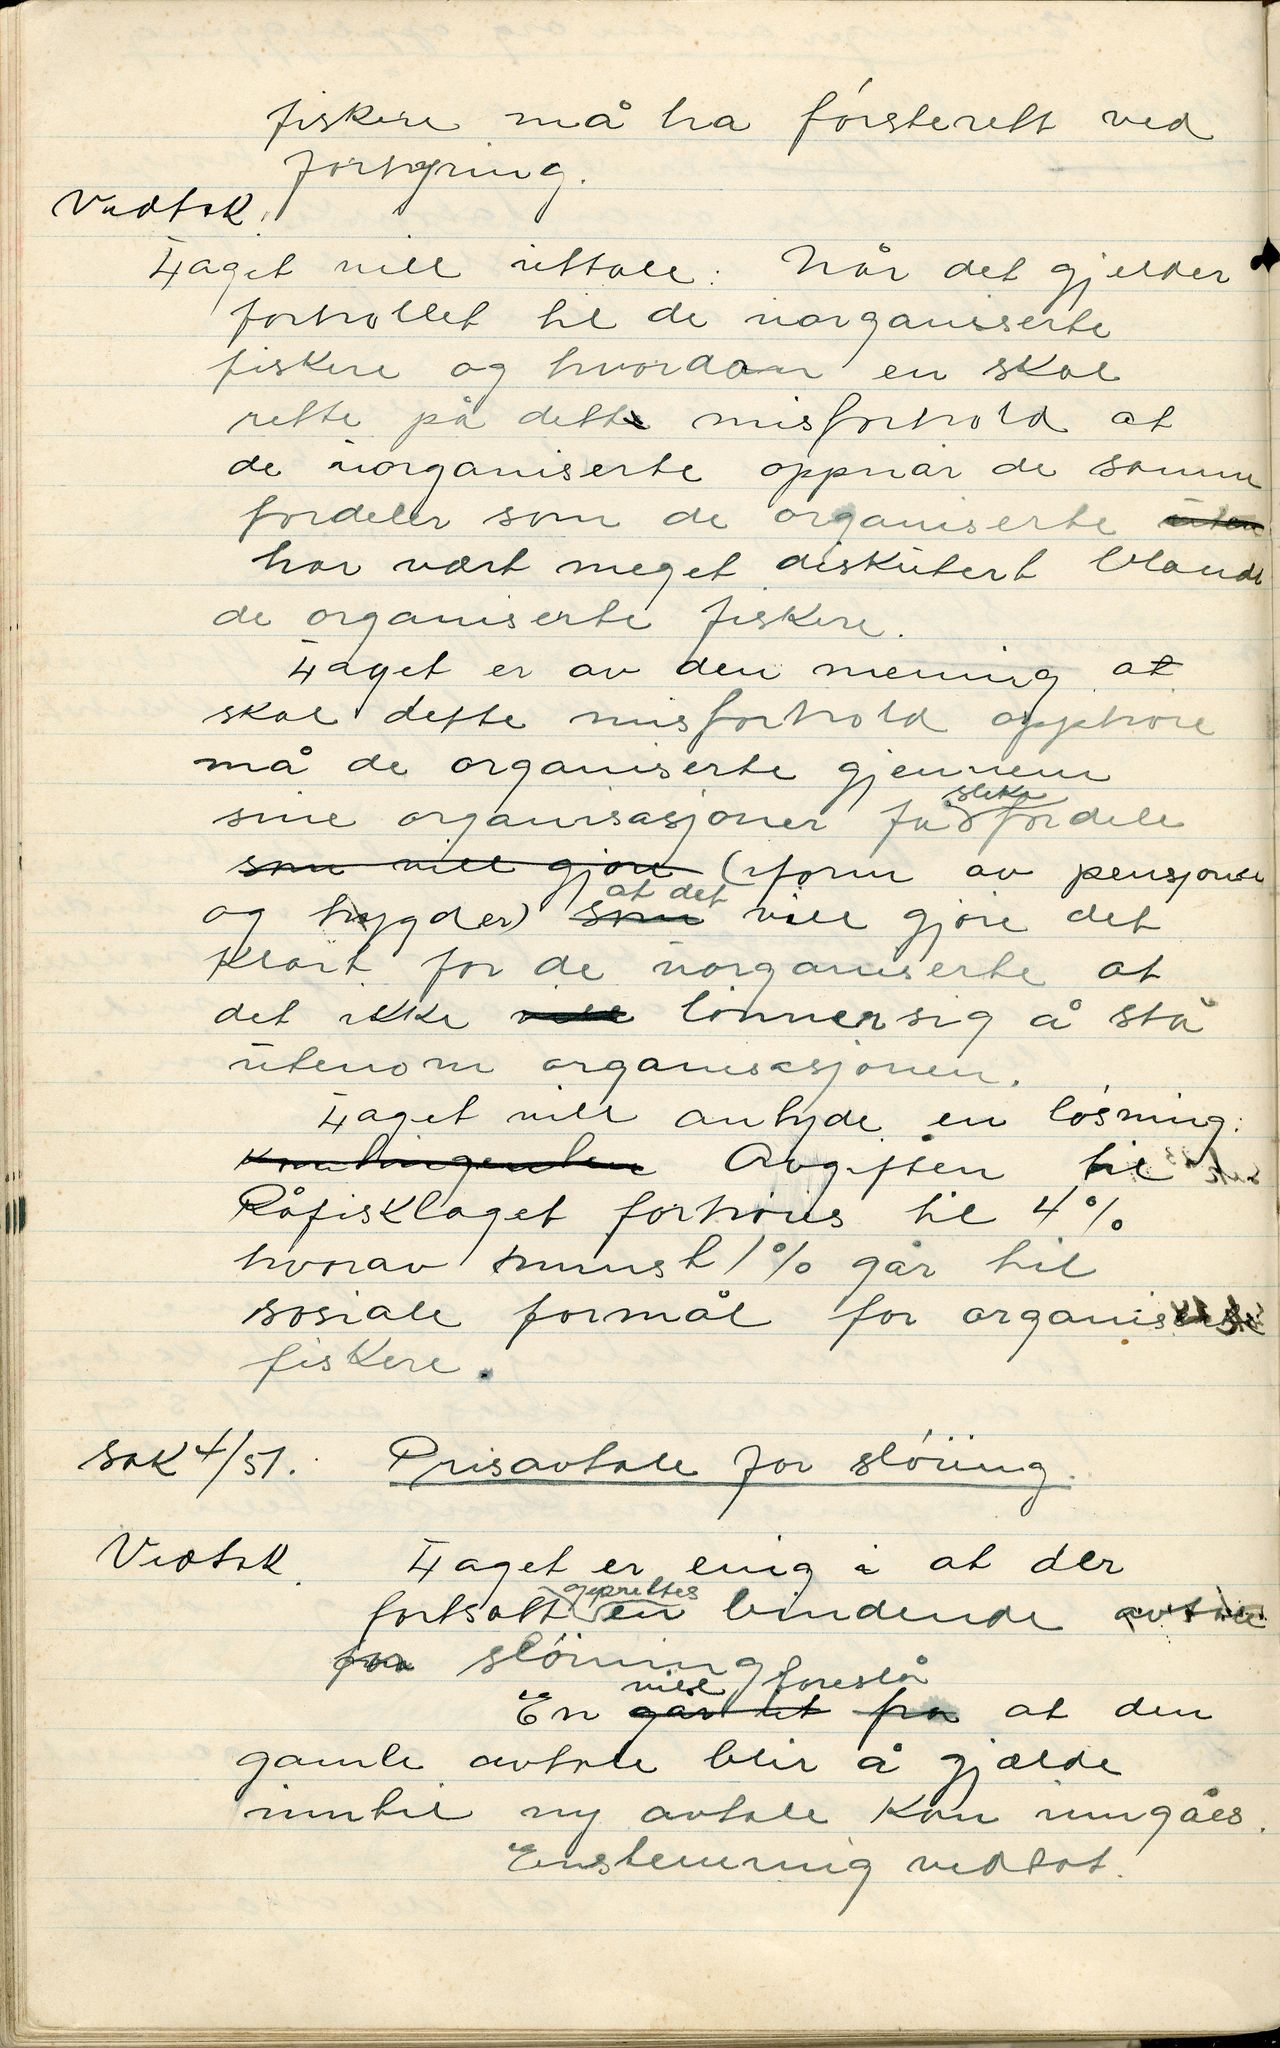 fiskere må ha førsterett ved
forsyning.
Vedtak.
Laget vill uttale: Når det gjelder
forhollet til de uorganiserte
fiskere og hvordan en skal
rette på dette misforhold at
de uorganiserte oppnår de samme
fordeler som de organiserte uten
har vært meget diskutert blandt
de organiserte fiskere.
Laget er av den mening at
skal dette misforhold opphøre
må de organiserte gjennem
slike
sine organisasjoner få fordele
som vill gjøre (iform av pensjoner
at det
og trygder) som vill gjøre det
klart for de uorganiserte at
det ikke vill lønner sig å stå
utenom organisasjonen.
Laget vill antyde en løsning:
Kontingenten Avgiften til
Råfisklaget forhøies til 4%
hvorav minst 1% går til
sosiale formål for organiserte
fiskere.
Sak 4/51. Prisavtale for sløiing.
Vedtak. Laget er enig i at der
opprettes
fortsatt en bindende avtale
for sløiing
vill foreslå
En går ut fra at den
gamle avtale blir å gjælde
inntil ny avtale kan inngåes.
Enstemmig vedtat.